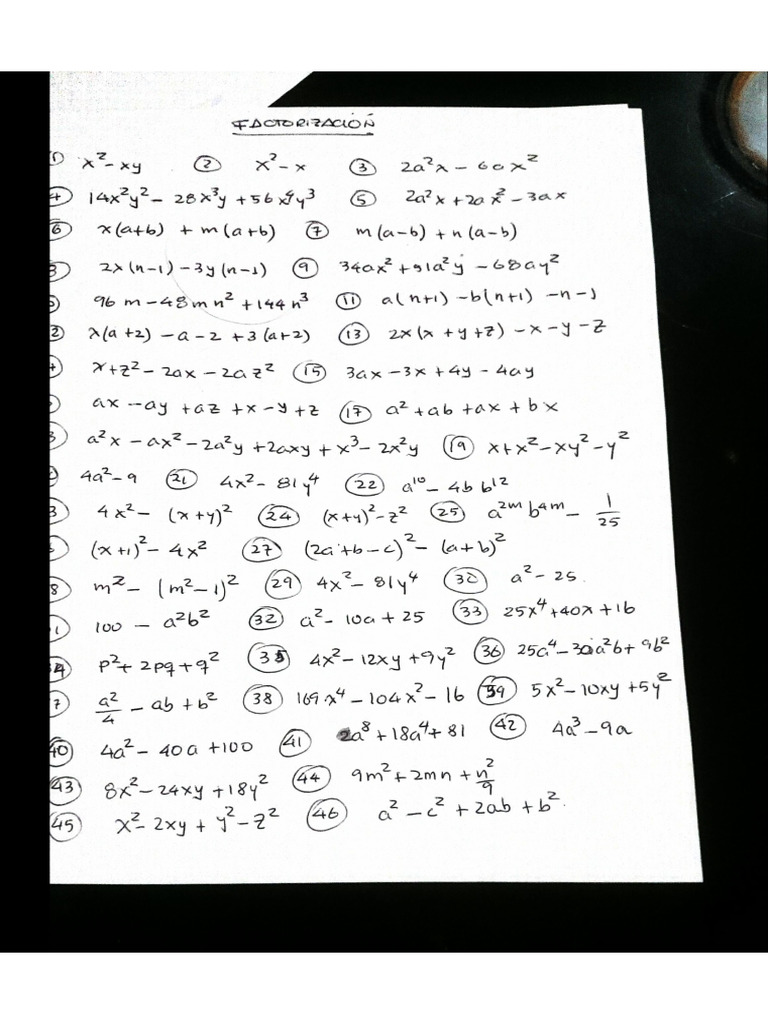 FACTORIZACIÓN
① x²-xy ② x²-x ③ 2a²x - 60x²
4 14x²y² - 28x³y + 56x⁴y³ ⑤ 2a²x+2ax²-3ax
6 x(a+b) + m(a+b) ⑦ m(a-b) + n(a-b)
8 2x(n-1) - 3y(n-1) ⑨ 34ax² + 51a²y - 68ay²
96m - 48mn² + 144n³ ⑪ a(n+1) - b(n+1) - n - 1
2 x(a+2) - a - 2 + 3(a+2) ⑬ 2x(x+y+z) - x - y - z
x+z² - 2ax - 2az² ⑮ 3ax - 3x + 4y - 4ay
ax - ay + az + x - y + z ⑰ a² + ab + ax + bx
a²x - ax² - 2a²y + 2axy + x³ - 2x²y ⑲ x+x²-xy²-y²
4a²-9 ㉑ 4x² - 81y⁴ ㉒ a¹⁰ - 4b b¹²
3 4x² - (x+y)² ㉔ (x+y)²-z² ㉕ a²ᵐb⁴ᵐ - 1/25
(x+1)² - 4x² ㉗ (2a+b-c)² - (a+b)²
8 m² - (m²-1)² ㉙ 4x² - 81y⁴ ㉚ a² - 25
1 100 - a²b² ㉜ a² - 10a + 25 ㉝ 25x⁴+40x+16
34 p²+2pq+q² ㉟ 4x²-12xy+9y² ㊱ 25a⁴-30a²b+9b²
7 a²/4 - ab + b² ㊳ 169x⁴ - 104x² - 16 ㊴ 5x²-10xy+5y²
40 4a² - 40a + 100 ㊶ a⁸ + 18a⁴ + 81 ㊷ 4a³ - 9a
43 8x² - 24xy + 18y² ㊹ 9m² + 2mn + n²/9
45 x² - 2xy + y² - z² ㊻ a² - c² + 2ab + b²